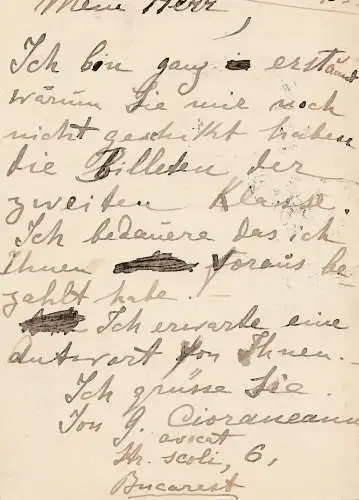 Mein Herr!
Ich bin ganz erstaunt
warum Sie mir noch
nicht geschikt haben
die Billeten der
zweiten Klasse.
Ich bedauere das ich
Ihnen Voraus be-
zahlt habe. —
Ich erwarte eine
Antwort von Ihnen. —
Ich grüsse Sie.
Ion G. Cioraneanu
avocat
Str. scoli, 6,
Bucarest